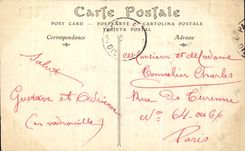 Carte Postale
POST CARD — POSTKARTE — CARTOLINA POSTALE
TARJETA POSTAL
Correspondance
Adresse
Monsieur et Madame
Charles
Rue de Turenne
N° 64 ou 66
Paris
Saluts
Gustave et Adrienne
(en vadrouille)